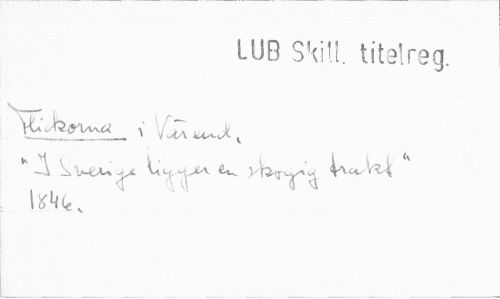 LUB Skill. titelreg.
Flickorna i Värend.
"I Sverige ligger en skogig trakt"
1846.